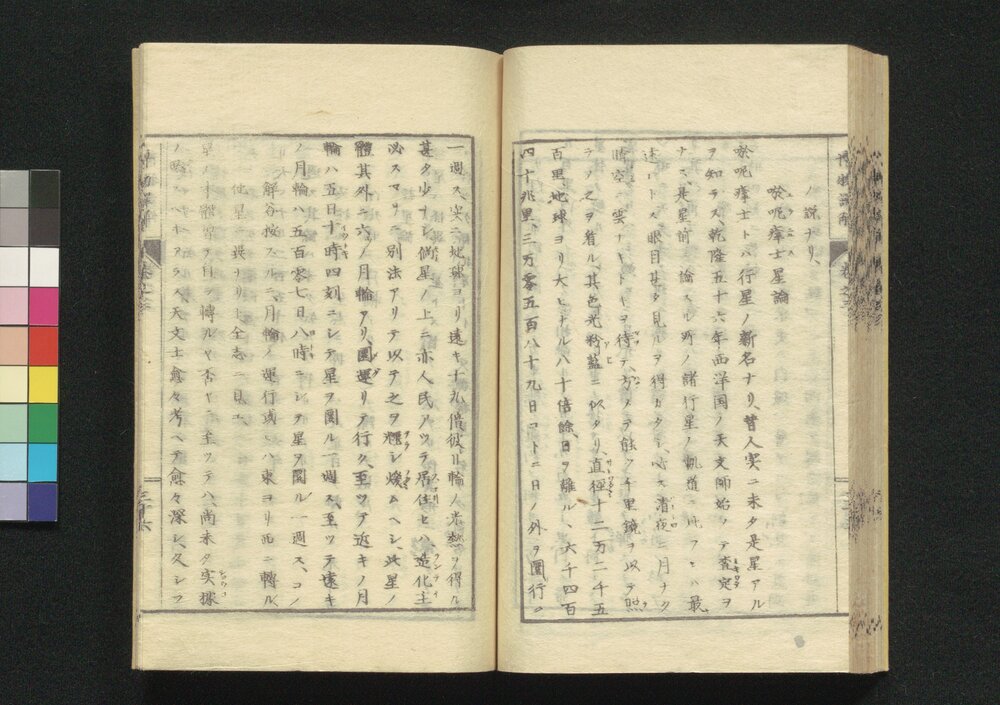 ノ説ナリ、
唹呢瘴士星論
唹呢瘴士トハ行星ノ新名ナリ、昔人実ニ未タ是星アル
ヲ知ラス乾隆五十六年西洋国ノ天文師始テ査定ヲ
ナス是星前ニ論スル所ノ諸行星ノ軌道ニ比フレハ最
遠シトス眼目甚タ見ルヲ得カタシ、必ス清夜ニ月ナク
晴空ニ雲ナキトキヲ待テ、方メテ能ク千里鏡ヲ以テ照
ラシ之ヲ看ル、其色光粉藍ニ似タリ、直徑十二万二千五
百里地球ヨリ大ヒナル八十倍餘、日ヲ離ル、六千四百
四十兆里、三万零五百八十九日コトニ日ノ外ヲ圜行シ
一週ス、実ニ地球ヨリ遠キ十九倍彼日輪ノ光熱ヲ得ル
甚タ少ナシ倘星ノ上ニ亦人民アツテ居住セハ造化主
必スマタ別法アリテ以テ之ヲ燿シ煖ムヘシ、此星ノ
體其外ニ六ノ月輪アリ、圜運リテ行ク、至ツテ近キノ月
輪ハ五日十時四刻ニシテ星ヲ圜ル一週ス、至ツテ遠キ
ノ月輪ハ五百零七日八時ニシテ星ヲ圜ル一週ス、コノ
解谷按スルニ、月輪ノ運行或ハ東ヨリ西ニ轉ル
他星ニ異ナリト全志ニ見エ
星ノ本體星ヲ自ラ轉ルヤ否ヤニ至ツテハ、尚未タ実據
天文士愈々考ヘテ愈々深シ、久シフ